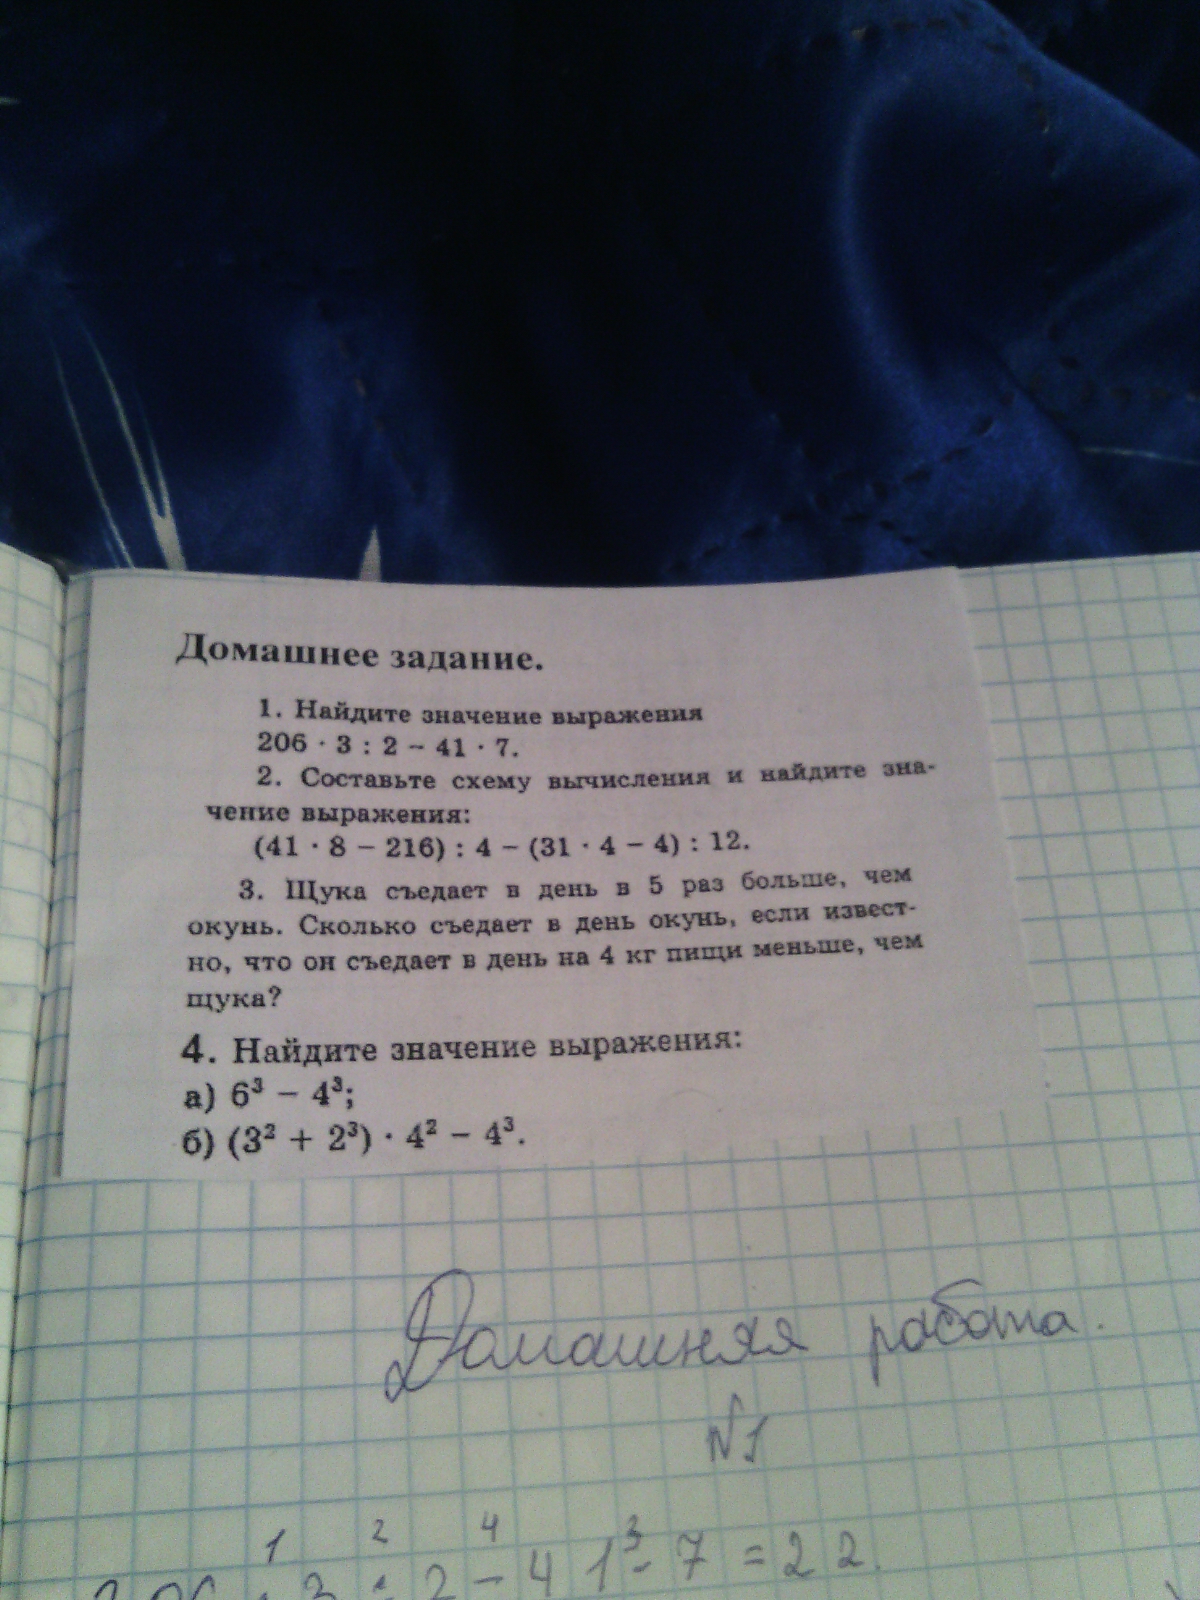 Домашнее задание.
1. Найдите значение выражения
206 · 3 : 2 – 41 · 7.
2. Составьте схему вычисления и найдите зна-
чение выражения:
(41 · 8 – 216) : 4 – (31 · 4 – 4) : 12.
3. Щука съедает в день в 5 раз больше, чем
окунь. Сколько съедает в день окунь, если извест-
но, что он съедает в день на 4 кг пищи меньше, чем
щука?
4. Найдите значение выражения:
а) 6³ – 4³;
б) (3² + 2³) · 4² – 4³.
Домашняя работа.
№1
1 2 4 3
206 · 3 : 2 – 41 · 7 = 22.